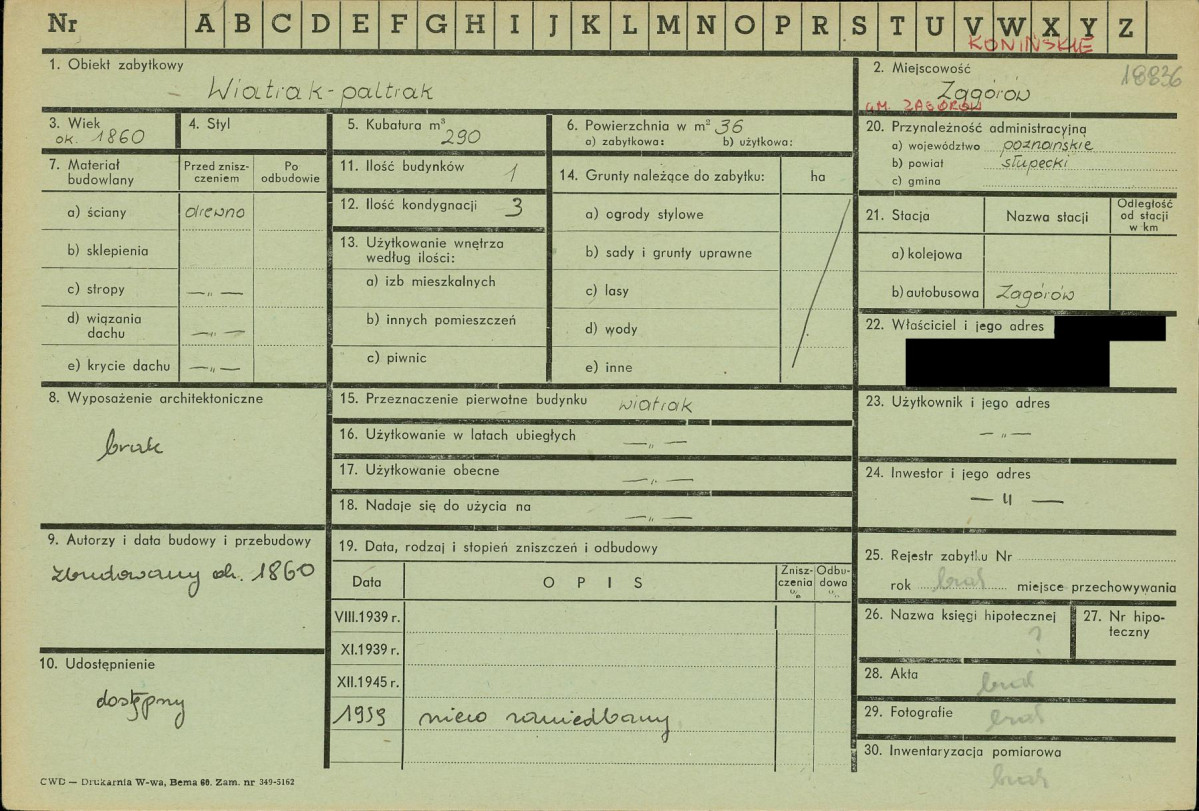 Nr A B C D E F G H I J K L M N O P R S T U V W X Y Z
KONIŃSKIE
1. Obiekt zabytkowy
Wiatrak-paltrak
2. Miejscowość
18836
Zagórów
GM. ZAGÓRÓW
3. Wiek
ok. 1860
4. Styl
5. Kubatura m³
290
6. Powierzchnia w m² 36
a) zabytkowa: b) użytkowa:
20. Przynależność administracyjna
a) województwo poznańskie
b) powiat słupecki
c) gmina
7. Materiał budowlany
Przed znisz-
czeniem
Po
odbudowie
a) ściany drewno
b) sklepienia
c) stropy —„—
d) wiązania
dachu —„—
e) krycie dachu —„—
11. Ilość budynków 1
12. Ilość kondygnacji 3
13. Użytkowanie wnętrza
według ilości:
a) izb mieszkalnych
b) innych pomieszczeń
c) piwnic
14. Grunty należące do zabytku: ha
a) ogrody stylowe
b) sady i grunty uprawne
c) lasy
d) wody
e) inne
21. Stacja Nazwa stacji
Odległość
od stacji
w km
a) kolejowa
b) autobusowa Zagórów
22. Właściciel i jego adres
8. Wyposażenie architektoniczne
brak
15. Przeznaczenie pierwotne budynku wiatrak
16. Użytkowanie w latach ubiegłych —„—
17. Użytkowanie obecne —„—
18. Nadaje się do użycia na —„—
23. Użytkownik i jego adres
—„—
24. Inwestor i jego adres
—„—
9. Autorzy i data budowy i przebudowy
zbudowany ok. 1860
10. Udostępnienie
dostępny
19. Data, rodzaj i stopień zniszczeń i odbudowy
Data OPIS
Znisz-
czenia
%
Odbu-
dowa
%
VIII.1939 r.
XI.1939 r.
XII.1945 r.
1959 nieco zaniedbany
25. Rejestr zabytku Nr
rok brak miejsce przechowywania
26. Nazwa księgi hipotecznej
?
27. Nr hipo-
teczny
28. Akta
brak
29. Fotografie
brak
30. Inwentaryzacja pomiarowa
brak
CWD — Drukarnia W-wa, Bema 60. Zam. nr 349-5162